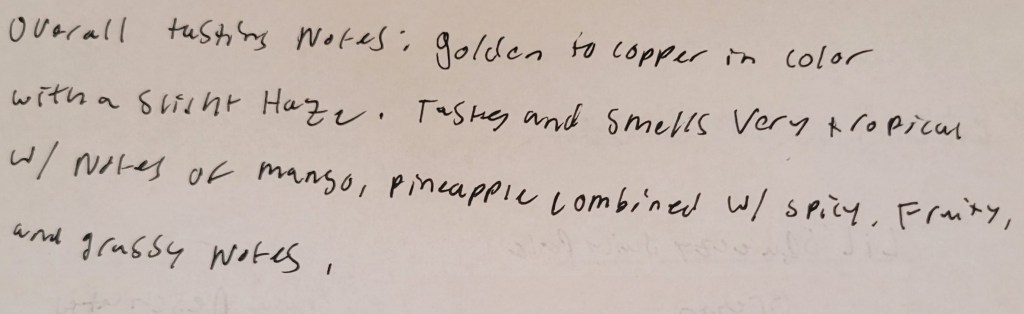 Overall tasting Notes: golden to copper in color
with a slight Haze. Tastes and smells very tropical
w/ notes of mango, pineapple combined w/ spicy, Fruity,
and grassy notes.